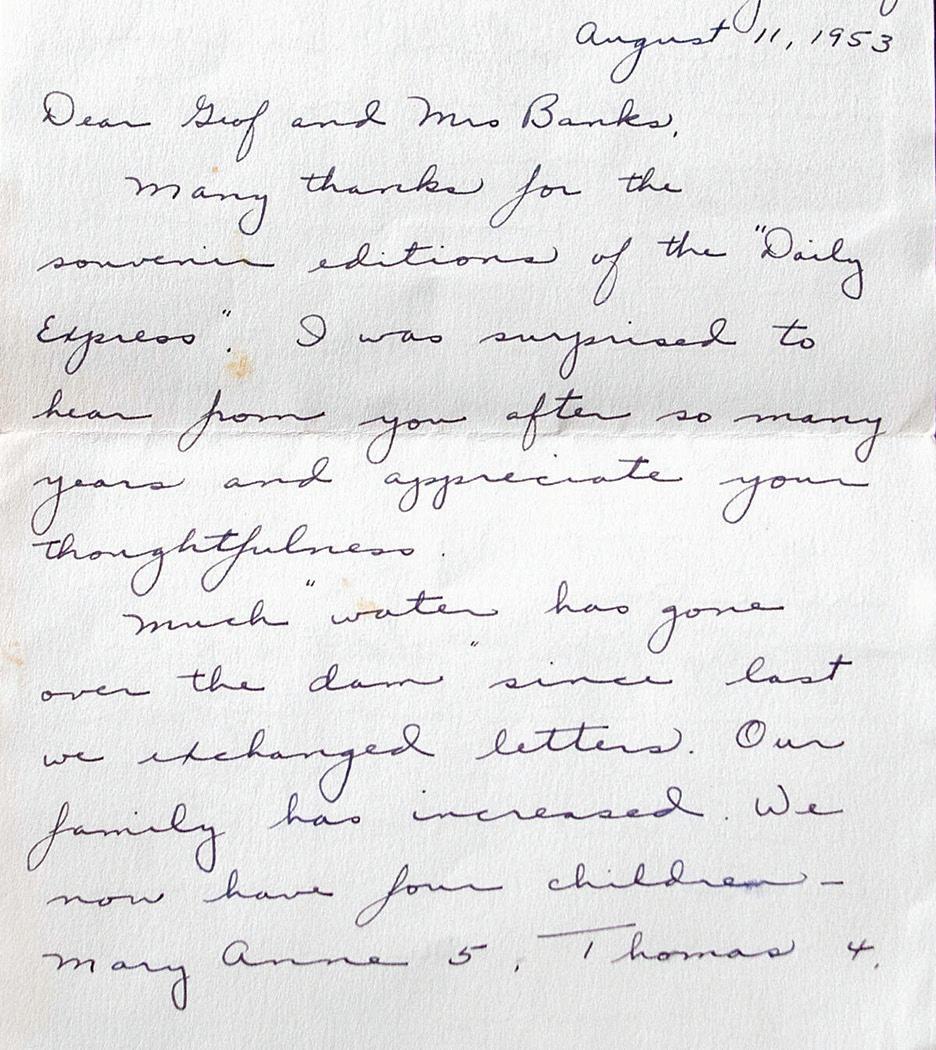 August 11, 1953
Dear Geof and Mrs Banks,
Many thanks for the
souvenir editions of the "Daily
Express". I was surprised to
hear from you after so many
years and appreciate your
thoughtfulness.
Much "water has gone
over the dam" since last
we exchanged letters. Our
family has increased. We
now have four children -
Mary Anne 5, Thomas 4,